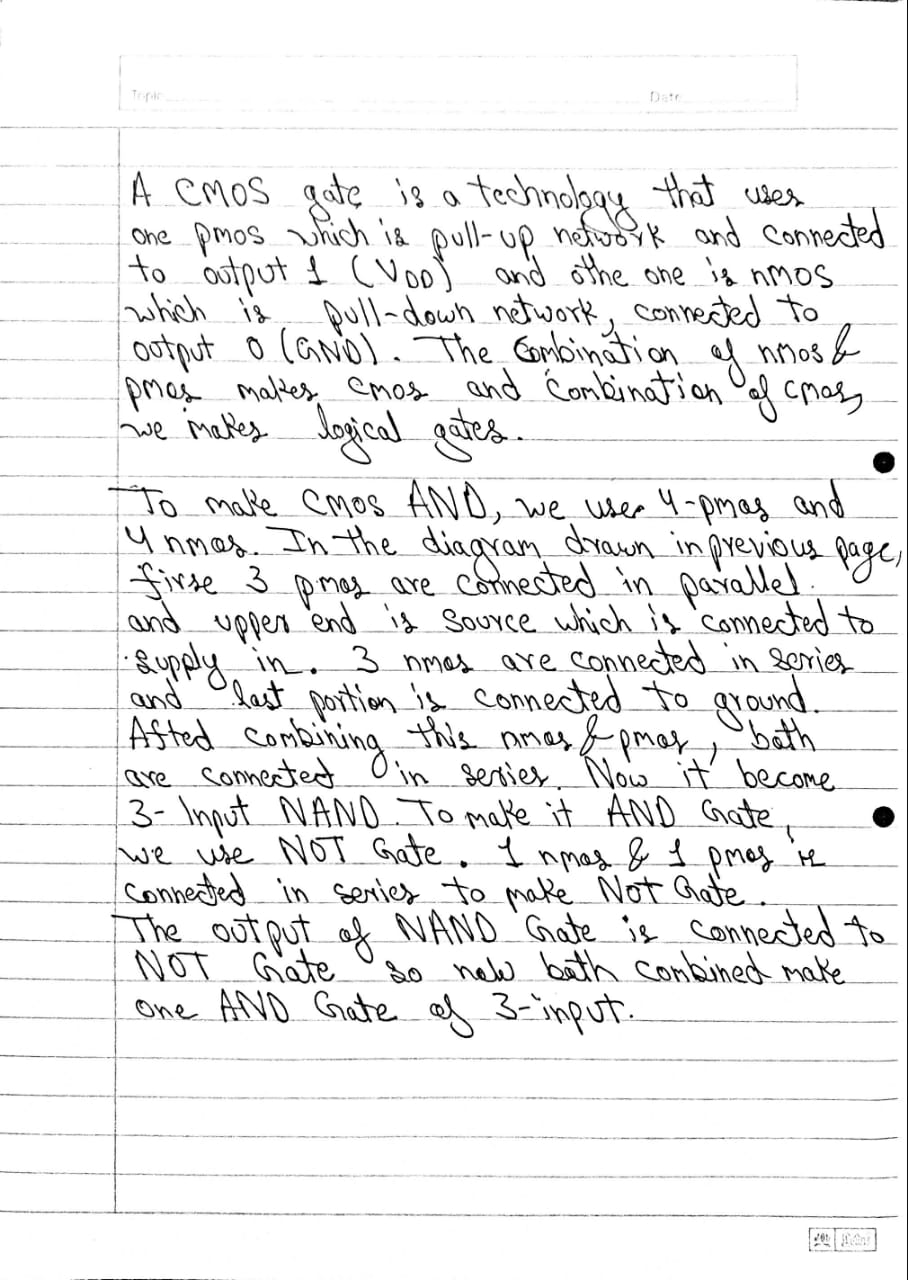 Topic
Date
A CMOS gate is a technology that uses
one pmos which is pull-up network and connected
to output 1 (VDD) and othe one is nMOS
which is pull-down network, connected to
output 0 (GND). The Combination of nmos &
pmos makes cmos and combination of cmos,
we makes logical gates.
To make CMOS AND, we use 4-pmos and
4 nmos. In the diagram drawn in previous page,
firse 3 pmos are connected in parallel.
and upper end is source which is connected to
supply in. 3 nmos are connected in series
and last portion is connected to ground.
Afted combining this nmos & pmos, both
are connected in series. Now it become
3-Input NAND. To make it AND Gate,
we use NOT Gate. 1 nmos & 1 pmos is
connected in series to make NOT Gate.
The output of NAND Gate is connected to
NOT Gate so now both combined make
one AND Gate of 3-input.